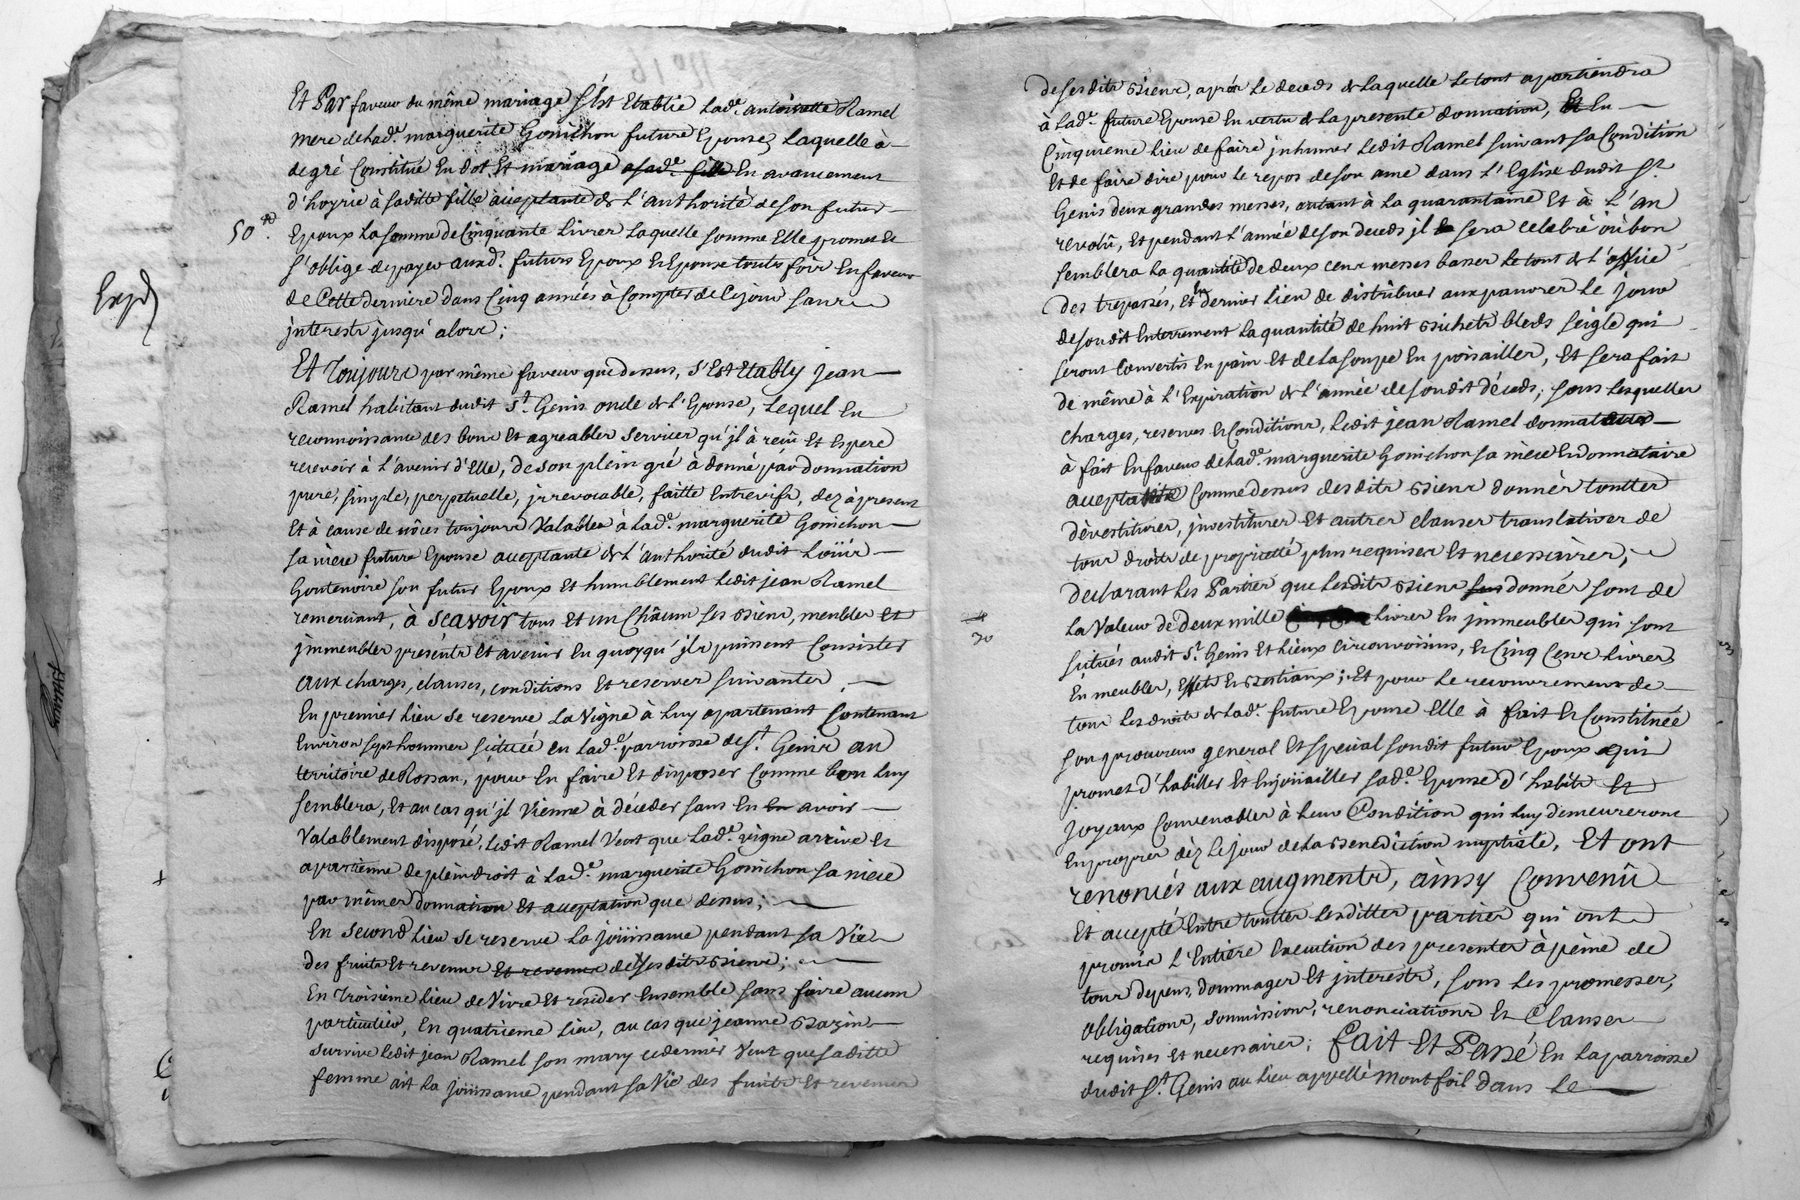 Et Par faveur du même mariage s'est Etablie Lade. antoinette Ramel
mere de lade. marguerite Gonichon future Epouse, Laquelle à
de gré Constitué En dot Et mariage a sade. fille En avancement
d'hoyrie à saditte fille acceptante de L'authorité de son futur
50 tt.
Epoux La somme de Cinquante Livres Laquelle somme Elle promet Et
s'oblige de payer auxd. futurs Epoux Et Epouse toute fois En faveur
Expd
de Cette derniere dans Cinq années à Compter de Ce jour sans
interests jusqu'alors;
Et Toujours par même faveur que dessus, s'Est Etably jean
Ramel habitant dudit St. Genis oncle de L'Epouse, Lequel En
reconnoissance des bons Et agreables services qu'jl à reçû Et Espere
recevoir à L'avenir d'Elle, de son plein gré à donné par donnation
pure, simple, perpetuelle, jrrevocable, faitte Entrevifs, dez à present
Et à cause de nôces toujours Valables à Lade. marguerite Gonichon
sa niece future Epouse acceptante de L'authorité dudit Loüis
Goutenoire son futur Epoux Et humblement Ledit jean Ramel
remerciant, à Scavoir tous Et un Châcun ses Biens, meubles Et
jmmeubles présents Et avenir En quoy qu'jls puissent Consister
aux charges, clauses, conditions Et reserves suivantes,
En premier Lieu se reserve La Vigne à Luy apartenant Contenant
Environ sept hommes située en Lade. parroisse de St. Genis au
territoire de Rossan, pour En faire Et disposer Comme bon Luy
semblera, Et au cas qu'jl Vienne à déceder sans En En avoir
Valablement disposé, Ledit Ramel Veut que Lade. vigne arrive Et
apartienne de plein droit à Lade. marguerite Gonichon sa niece
par mêmes donnation Et acceptation que dessus;
En Second Lieu se reserve La joüissance pendant sa Vie
des fruits Et revenus Et revenus de ses dits Biens;
En Troisieme Lieu de Vivre Et resider Ensemble sans faire aucun
particulier, En quatrieme Lieu, au cas que jeanne Bazin
survive Ledit jean Ramel son mary ce dernier Veut que saditte
femme ait La joüissance pendant sa Vie des fruits Et revenus
de ses dits Biens, après Le deceds de Laquelle Le tout apartiendra
à Lade. future Epouse En vertu de La presente donnation, Et En
Cinquieme Lieu de faire jnhumer Ledit Ramel suivant sa Condition
Et de faire dire pour Le repos de son ame dans L'Eglise dudit St.
Genis deux grandes messes, autant à La quarantaine Et à L'an
revolû, Et pendant L'année de son deceds jl sera celebré où bon
semblera La quantité de deux cens messes basses Le tout de L'office
des trepassés, Et En dernier Lieu de distribuer aux pauvres Le jour
de son dit Enterrement La quantité de huit Bichets bleds seigle qui
seront Convertis En pain Et de La soupe En poisailles, Et sera fait
de même à L'Expiration de L'année de son dit déceds; sous Lesquelles
charges, reserves Et Conditions, Ledit jean Ramel donnateur
à fait En faveur de Lade. marguerite Gonichon sa niece Et donnataire
acceptante Comme dessus des dits Biens donnés touttes
dévestitures, jnvestitures Et autres clauses translatives de
tous droits de proprieté plus requises Et necessaires;
declarant Les Parties que Lesdits Biens donnés sont de
La Valeur de deux mille Livres En jmmeubles qui sont
20
situés audit St. Genis Et Lieux circonvoisins, Et Cinq Cens Livres
En meubles, Effets Et Bestiaux; Et pour Le recouvrement de
tous Les droits de Lade. future Epouse Elle à fait Et Constitüé
son procureur general Et special son dit futur Epoux qui
promet d'habiller Et Enjoüailler sade. Epouse d'habits Et
joyaux Convenables à Leur Condition qui Luy demeureront
En propres dèz Le jour de La Benediction nuptiale, Et ont
renoncés aux augments, ainsy Convenû
Et accepté Entre touttes Lesdittes parties qui ont
promis L'Entière Execution des presentes à péine de
tous depens, dommages Et interests, sous Les promesses,
obligations, soumissions, renonciations Et Clauses
requises Et necessaires; Fait Et Passé En La parroisse
dudit St. Genis au Lieu appellé Montfoil dans Le